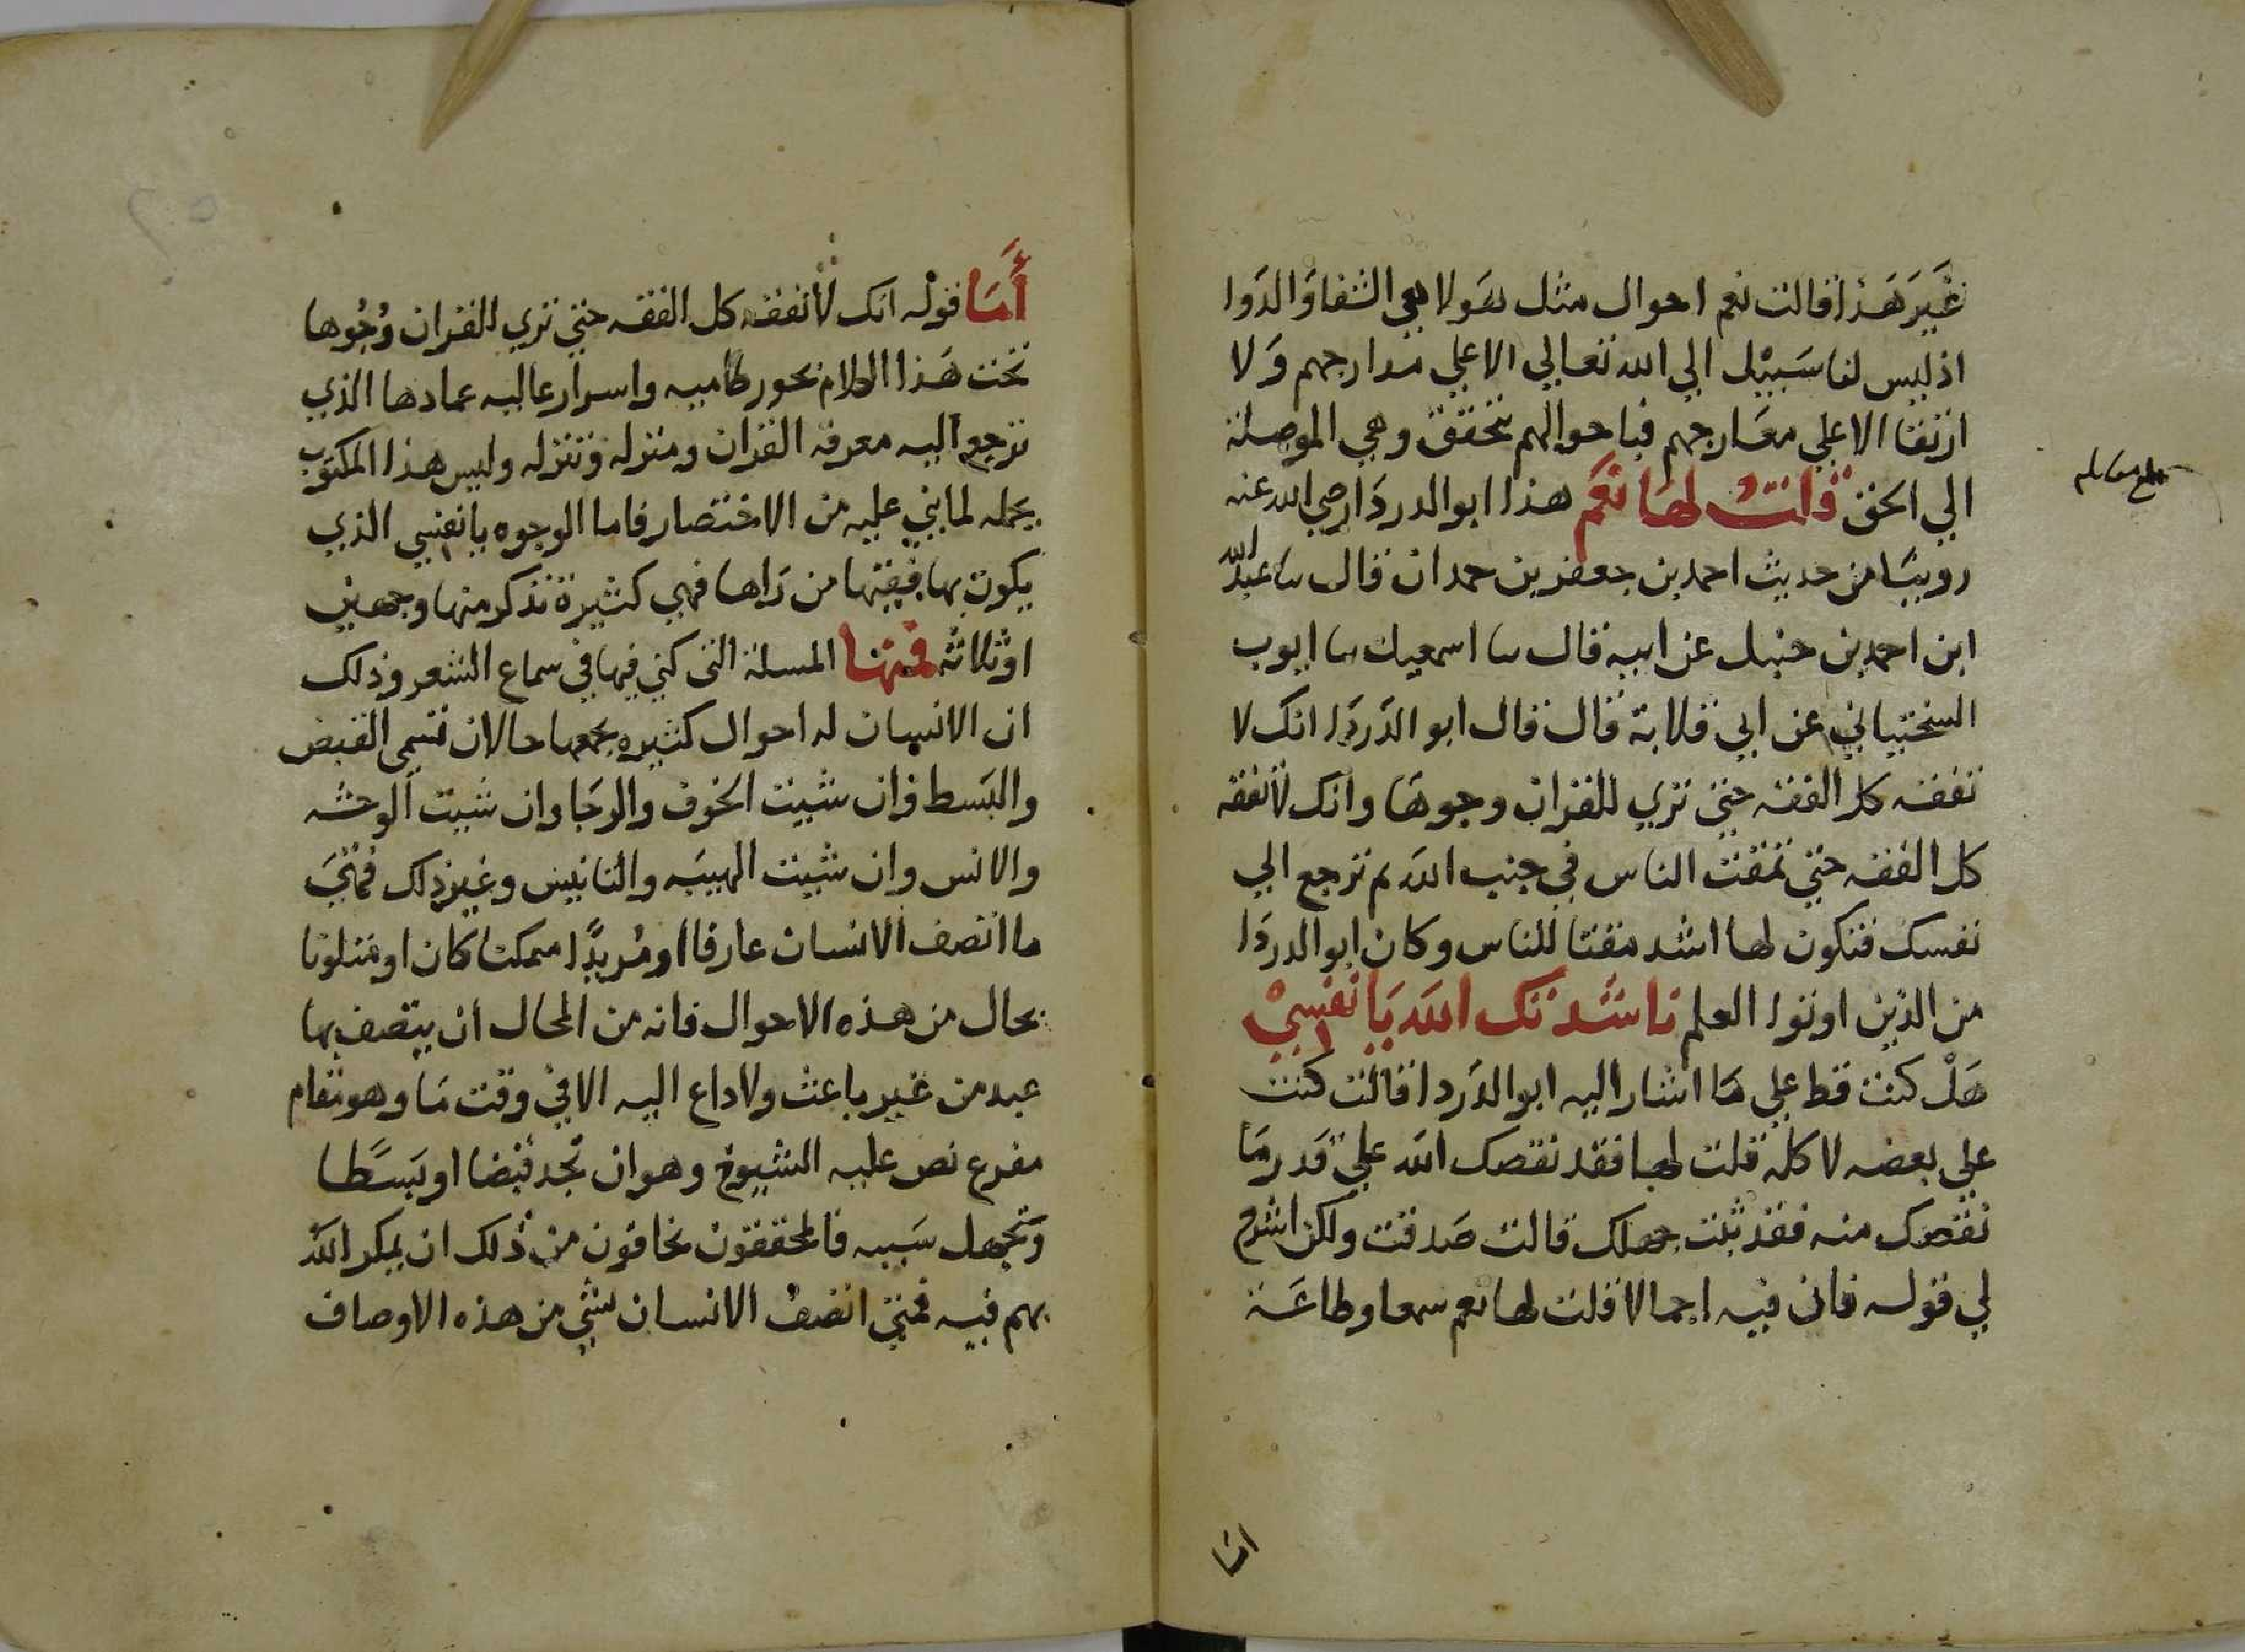 غَيرَ هَذا قالت نعم احوال مثل هَولا هي الشفا وَالدَوا
اذ ليس لنا سَبيْل الي الله تعالي الا علي مدارجهم وَلا
ارتقا الا علي معَارجهم فباحوالهم نتحقق وهي الموصلة
الي الحق قلتُ لها نعَم هذا ابو الدردَا رضي الله عنه
روينَا من حديث احمد بن جعفر بن حمدان قال ثنا عبد الله
ابن احمد بن حنبل عن ابيه قال ثنا اسمعيل ثنا ايوب
السختياني عن ابي قلابة قال قال ابو الدَردَا انك لا
تفقه كل الفقه حتي تري للقران وجوهَا وانك لا تفقه
كل الفقه حتي تمقت الناس في جنب الله ثم ترجع الي
نفسك فتكون لها اشد مقتا للناس وكان ابو الدردَا
من الذين اوتوا العلم ناشَدتك الله يَا نفسِيْ
هَلْ كنت قط علي مَا اشار اليه ابو الدَردا فقالت كنت
علي بعضه لا كله قلت لها فقد نقصك الله علي قَدر مَا
نقصك منه فقد ثبت جهلك قالت صَدقت ولكن اشرح
لي قوله فان فيه اجمالا قلت لها نعم سمعا وطاعَة
اما
أَمَا قولْه انك لا تفقه كل الفقه حتي تري للقران وُجُوها
تحت هَذا الكلام بحور طاميه واسرار عاليه عمادها الذي
ترجع اليه معرفة القران ومنزله وتنزله وليس هذا المكتوب
يحمله لما بني عليه من الاختصار فاما الوجوه يا نفسي الذي
يكون بها فقيها من رَاها فهي كثيرة نذكر منها وجهين
او ثلاثه فمنها المسلة التي كني فيها في سماع الشعر وذلك
ان الانسان له احوال كثيره يجمعها حالان تسمي القبض
والبَسط وَان شيت الخوف والرجَا وان شيت الوحشه
والانس وان شيت الهيبَه والتانيس وغير ذلك فمتيَ
ما اتصف الانسان عارفا او مُريدًا ممكنا كان او متلونا
بحال من هذه الاحوال فانه من المحال ان يتصف بها
عبد من غير باعث ولا داع اليه الا في وقت مَا وهو مقام
مفرع نص عليه الشيوخ وهو ان تَجد قبضا او بَسَطا
وَتجهل سَببه فالمحققون يخافون من ذلك ان يمكر الله
بهم فيه فمتي اتصف الانسان بشي من هذه الاوصاف